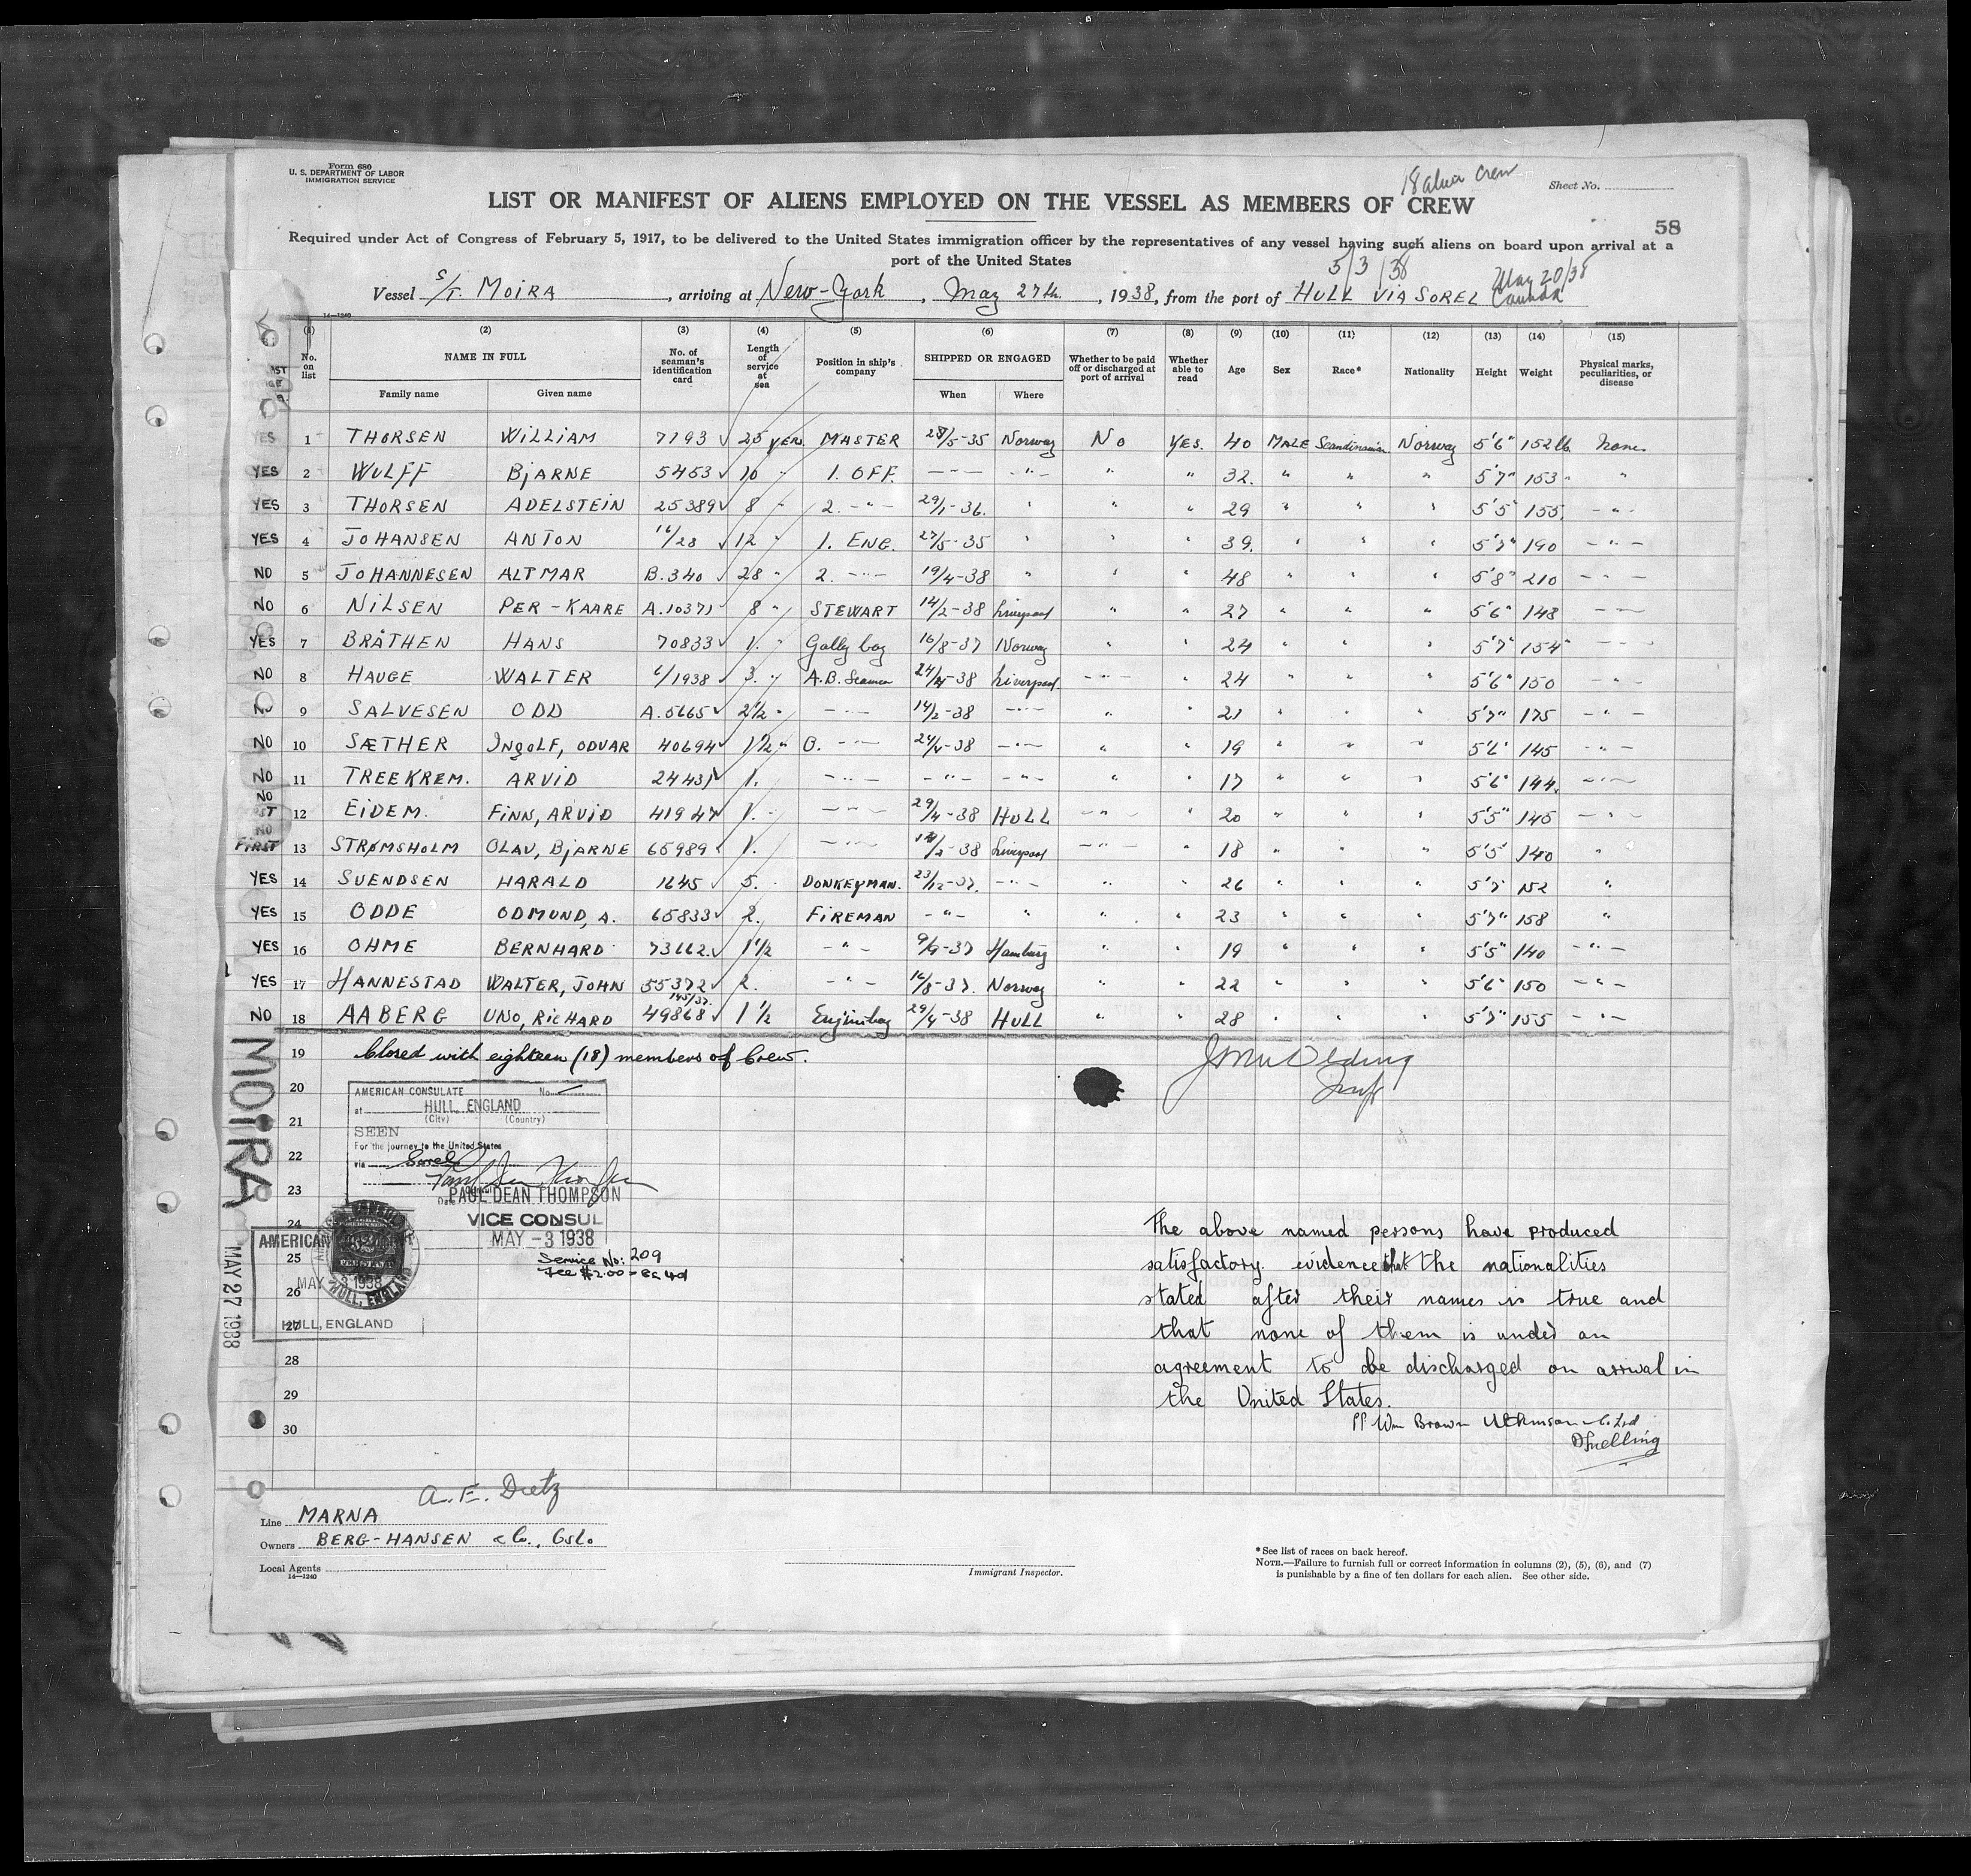 Form 680
U. S. DEPARTMENT OF LABOR
IMMIGRATION SERVICE
18 alien crew
Sheet No.
LIST OR MANIFEST OF ALIENS EMPLOYED ON THE VESSEL AS MEMBERS OF CREW
58
Required under Act of Congress of February 5, 1917, to be delivered to the United States immigration officer by the representatives of any vessel having such aliens on board upon arrival at a
port of the United States
5/3/38 May 20/38
Vessel S/T. MOIRA, arriving at New-York, May 27th, 1938, from the port of HULL VIA SOREL Canada
14—1240
(1) (2) (3) (4) (5) (6) (7) (8) (9) (10) (11) (12) (13) (14) (15)
No. on list NAME IN FULL No. of seaman's identification card Length of service at sea Position in ship's company SHIPPED OR ENGAGED Whether to be paid off or discharged at port of arrival Whether able to read Age Sex Race* Nationality Height Weight Physical marks, peculiarities, or disease
Family name Given name When Where
YES 1 THORSEN WILLIAM 7793 25 years MASTER 28/5-35 Norway No YES. 40 MALE Scandinavian Norway 5'6" 152 lb. None
YES 2 WULFF BJARNE 5453 10 " 1. OFF. —"— —"— " " 32. " " " 5'7" 153 " "
YES 3 THORSEN ADELSTEIN 25389 8 " 2. —"— 29/1-36. " " " 29 " " " 5'5" 155. —"—
YES 4 JOHANSEN ANTON 16/28 12 " 1. ENG. 27/5-35 " " " 39. " " " 5'7" 190 —"—
NO 5 JOHANNESEN ALTMAR B.340 28 " 2. —"— 19/4-38 " " " 48 " " " 5'8" 210 —"—
NO 6 NILSEN PER-KAARE A.10371 8 " STEWART 14/2-38 Liverpool " " 27 " " " 5'6" 148 —"—
YES 7 BRÅTHEN HANS 70833 1. " Gally boy 16/8-37 Norway " " 24 " " " 5'7" 154 " —"—
NO 8 HAUGE WALTER 6/1938 3. " A.B. Seaman 24/4-38 Liverpool —"— " 24 " " " 5'6" 150 —"—
NO 9 SALVESEN ODD A.5665 2 1/2 " —"— 14/2-38 —"— " " 21 " " " 5'7" 175 —"—
NO 10 SÆTHER INGOLF, ODVAR 40694 1 1/2 " O. —"— 24/4-38 —"— " " 19 " " " 5'6" 145 —"—
NO 11 TREEKREM. ARVID 24431 1. —"— —"— —"— " " 17 " " " 5'6" 144. —"—
NO
12 EIDEM. FINN, ARVID 41947 1. " —"— 29/4-38 HULL —"— " 20 " " " 5'5" 145 —"—
NO
FIRST 13 STRØMSHOLM OLAV, BJARNE 65989 1. —"— 14/2-38 Liverpool —"— " 18 " " " 5'5" 140 "
YES 14 SVENDSEN HARALD 1645 5. DONKEYMAN. 23/12-37. —"— " " 26 " " " 5'7" 152 "
YES 15 ODDE ODMUND, A. 65833 2. FIREMAN —"— " " " 23 " " " 5'7" 158 "
YES 16 OHME BERNHARD 73662. 1 1/2 —"— 9/9-37 Hamburg " " 19 " " " 5'5" 140 —"—
YES 17 HANNESTAD WALTER, JOHN 55372 2. —"— 16/8-37. Norway " " 22 " " " 5'6" 150 —"—
NO 18 AABERG UNO, RICHARD 145/37. 49868 1 1/2 Enginboy 29/4-38 HULL " " 28 " " " 5'7" 155 —"—
19 Closed with eighteen (18) members of Crew.
20
21
22
23
24
25
26
27
28
29
30
AMERICAN CONSULATE No.
at HULL, ENGLAND
(City) (Country)
SEEN
For the journey to the United States
via Sorel
Date PAUL DEAN THOMPSON
VICE CONSUL
MAY -3 1938
Service No: 209
AMERICAN
MAY -3 1938
HULL, ENGLAND
HULL, ENGLAND
MOIRA
MAY 27 1938
The above named persons have produced
satisfactory evidence that the nationalities
stated after their names is true and
that none of them is under an
agreement to be discharged on arrival in
the United States.
pp Wm Brown Atkinson & Co Ltd
Snelling
A. E. Dietz
Line MARNA
Owners BERG-HANSEN & Co., Oslo
Local Agents
14—1240
Immigrant Inspector.
*See list of races on back hereof.
NOTE.—Failure to furnish full or correct information in columns (2), (5), (6), and (7)
is punishable by a fine of ten dollars for each alien. See other side.